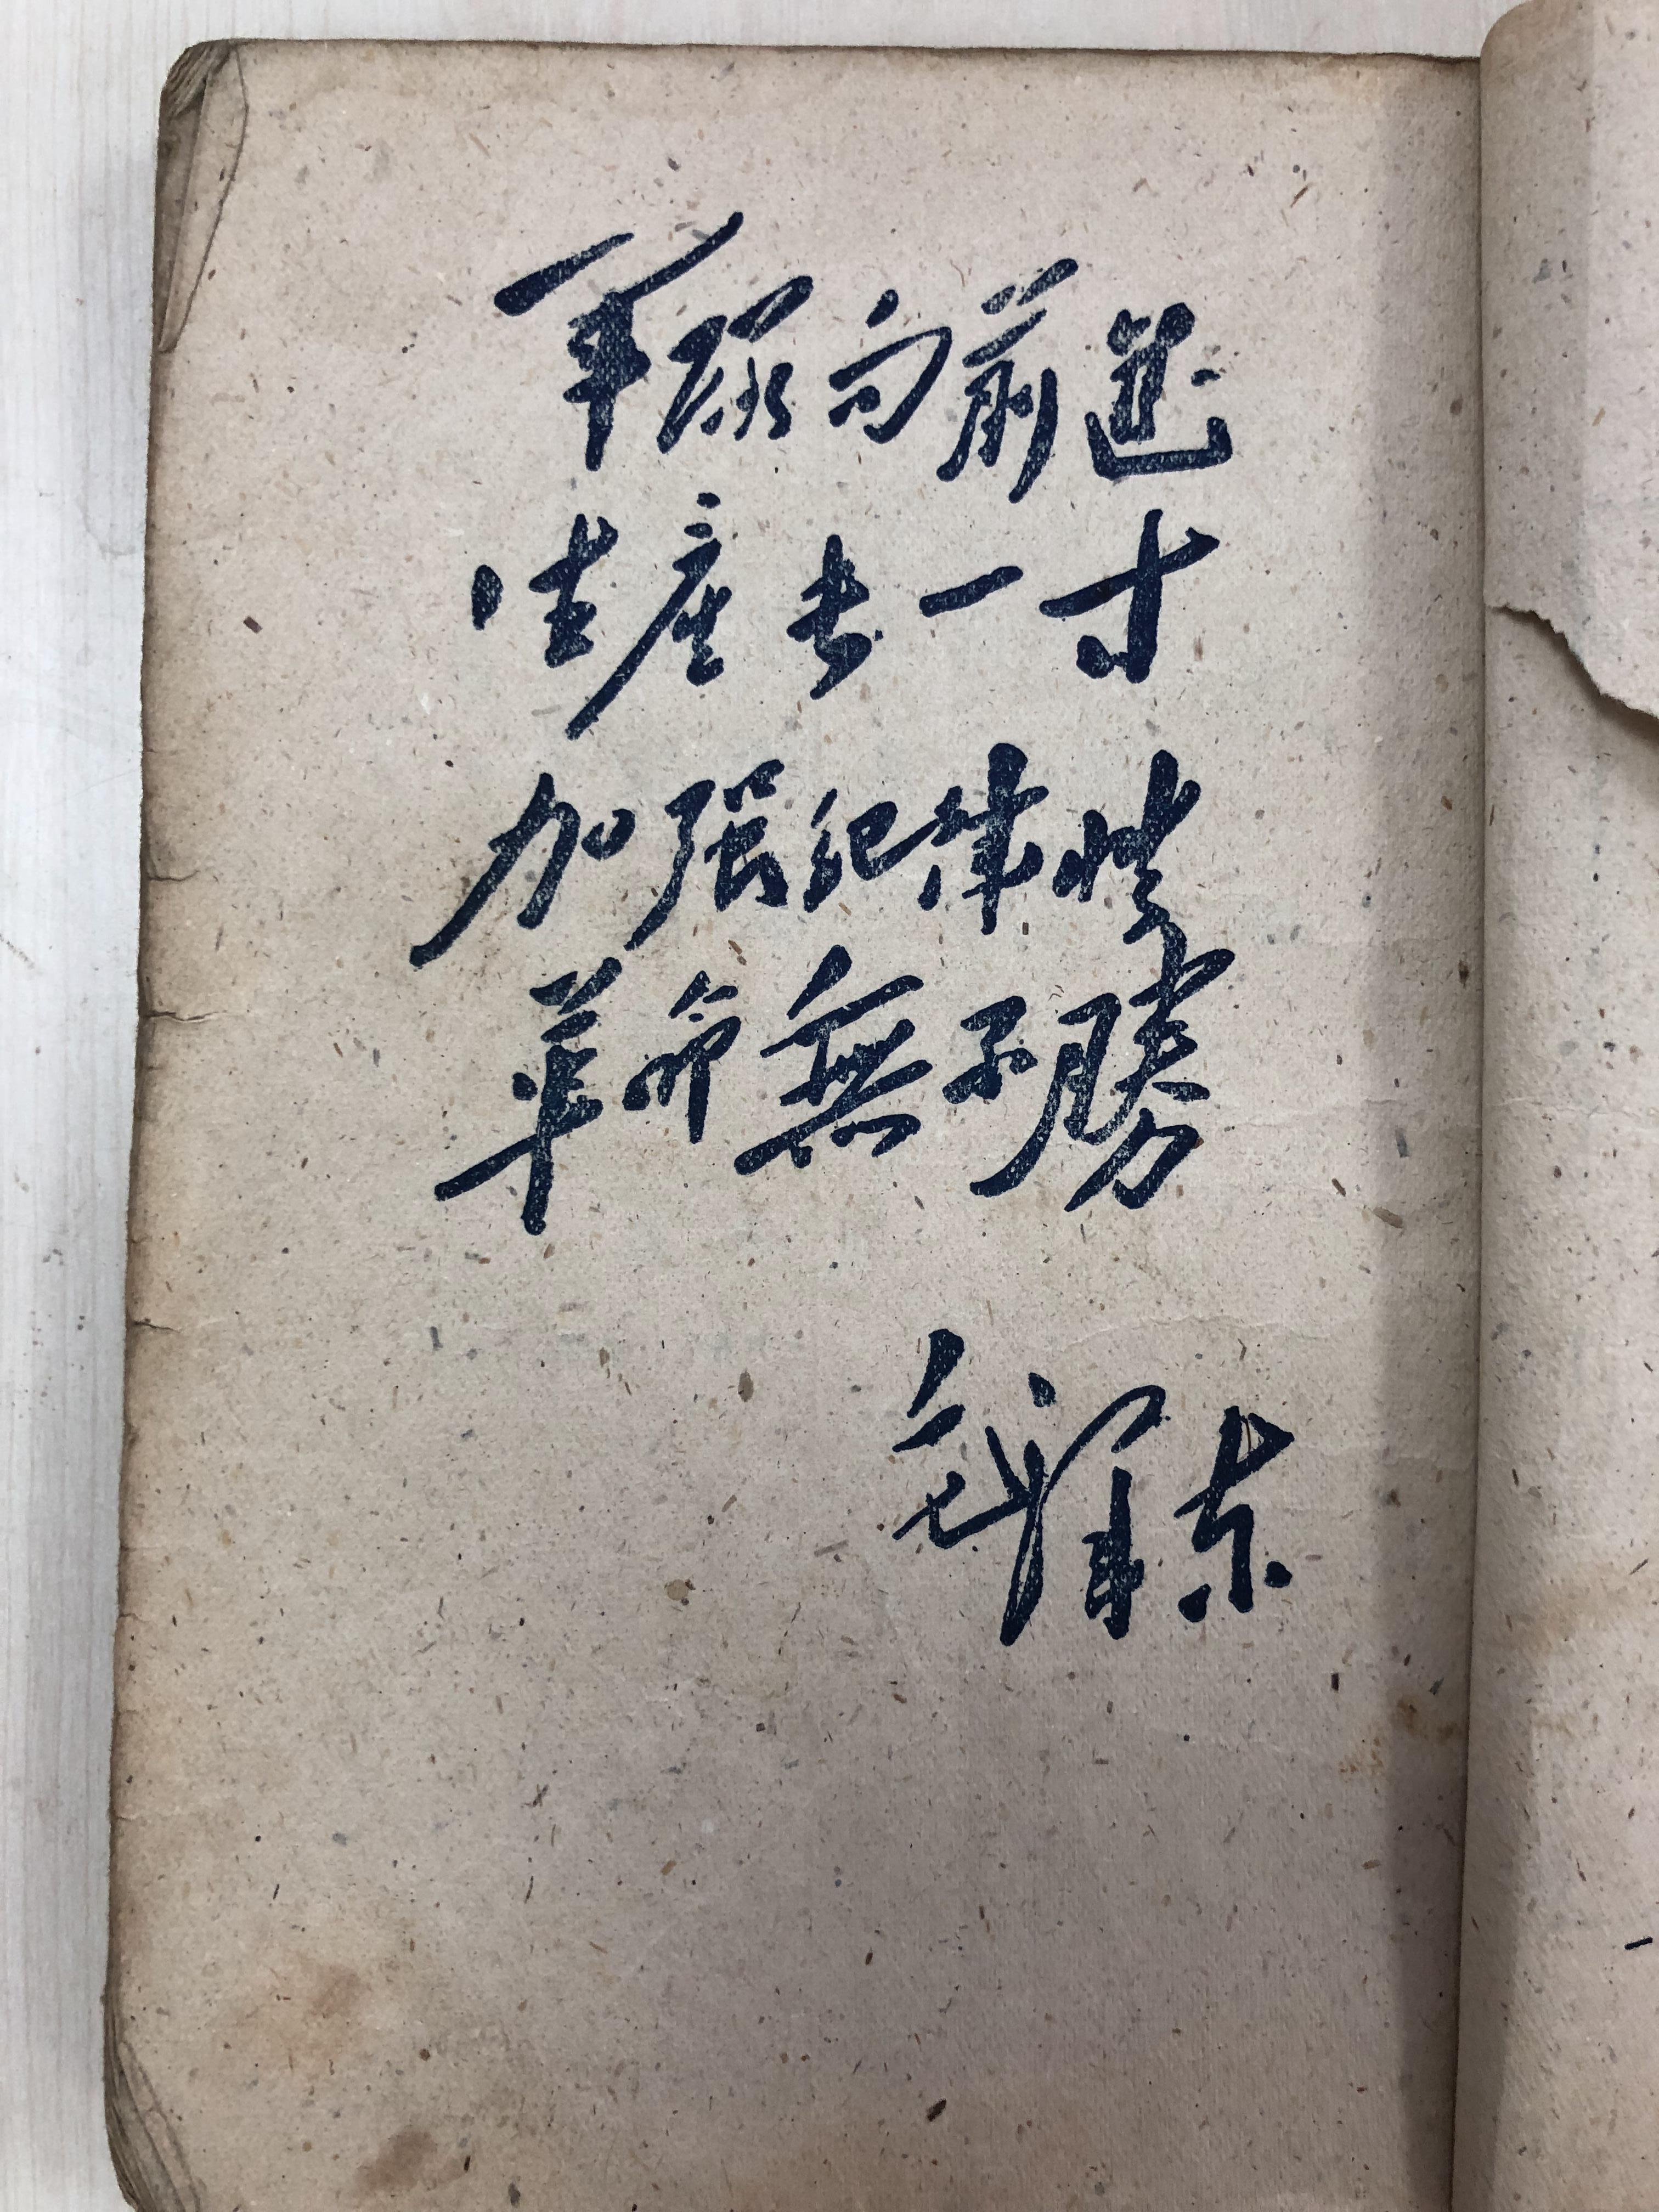 軍隊向前進
生產長一寸
加强紀律性
革命無不勝
毛澤東